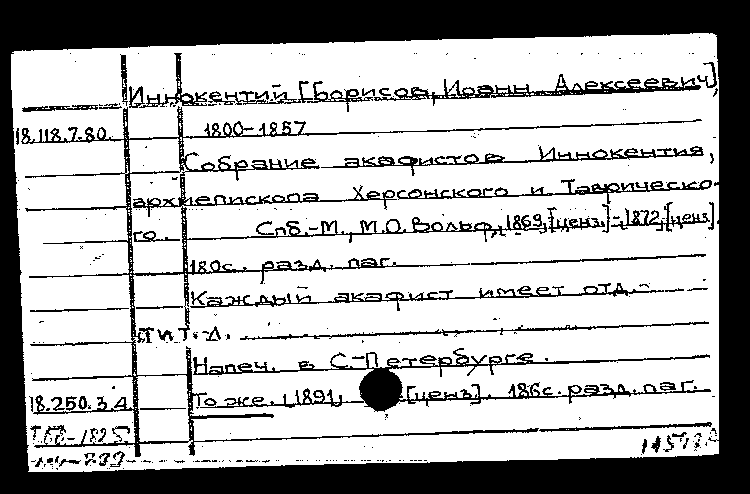 Иннокентий [Борисов, Иоанн Алексеевич],
18.118.7.80. 1800-1857
Собрание акафистов Иннокентия,
архиепископа Херсонского и Таврическо-
го. Спб.-М., М.О. Вольф, 1869, [ценз.]-1872, [ценз].
180с. разд. паг.
Каждый акафист имеет отд.
тит. л.
Напеч. в С.-Петербурге.
18.250.3.4 То же. 1891, [ценз]. 186с. разд. паг.